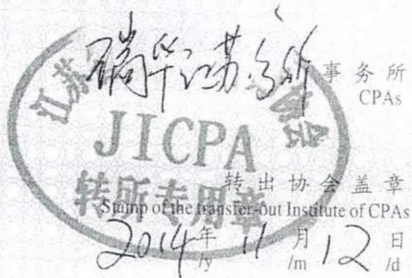 瑞华江苏分所
事务所
CPAs
江苏
协会
JICPA
转所专用章
转出协会盖章
Stamp of the transfer-out Institute of CPAs
2014年11月12日
/y /m /d